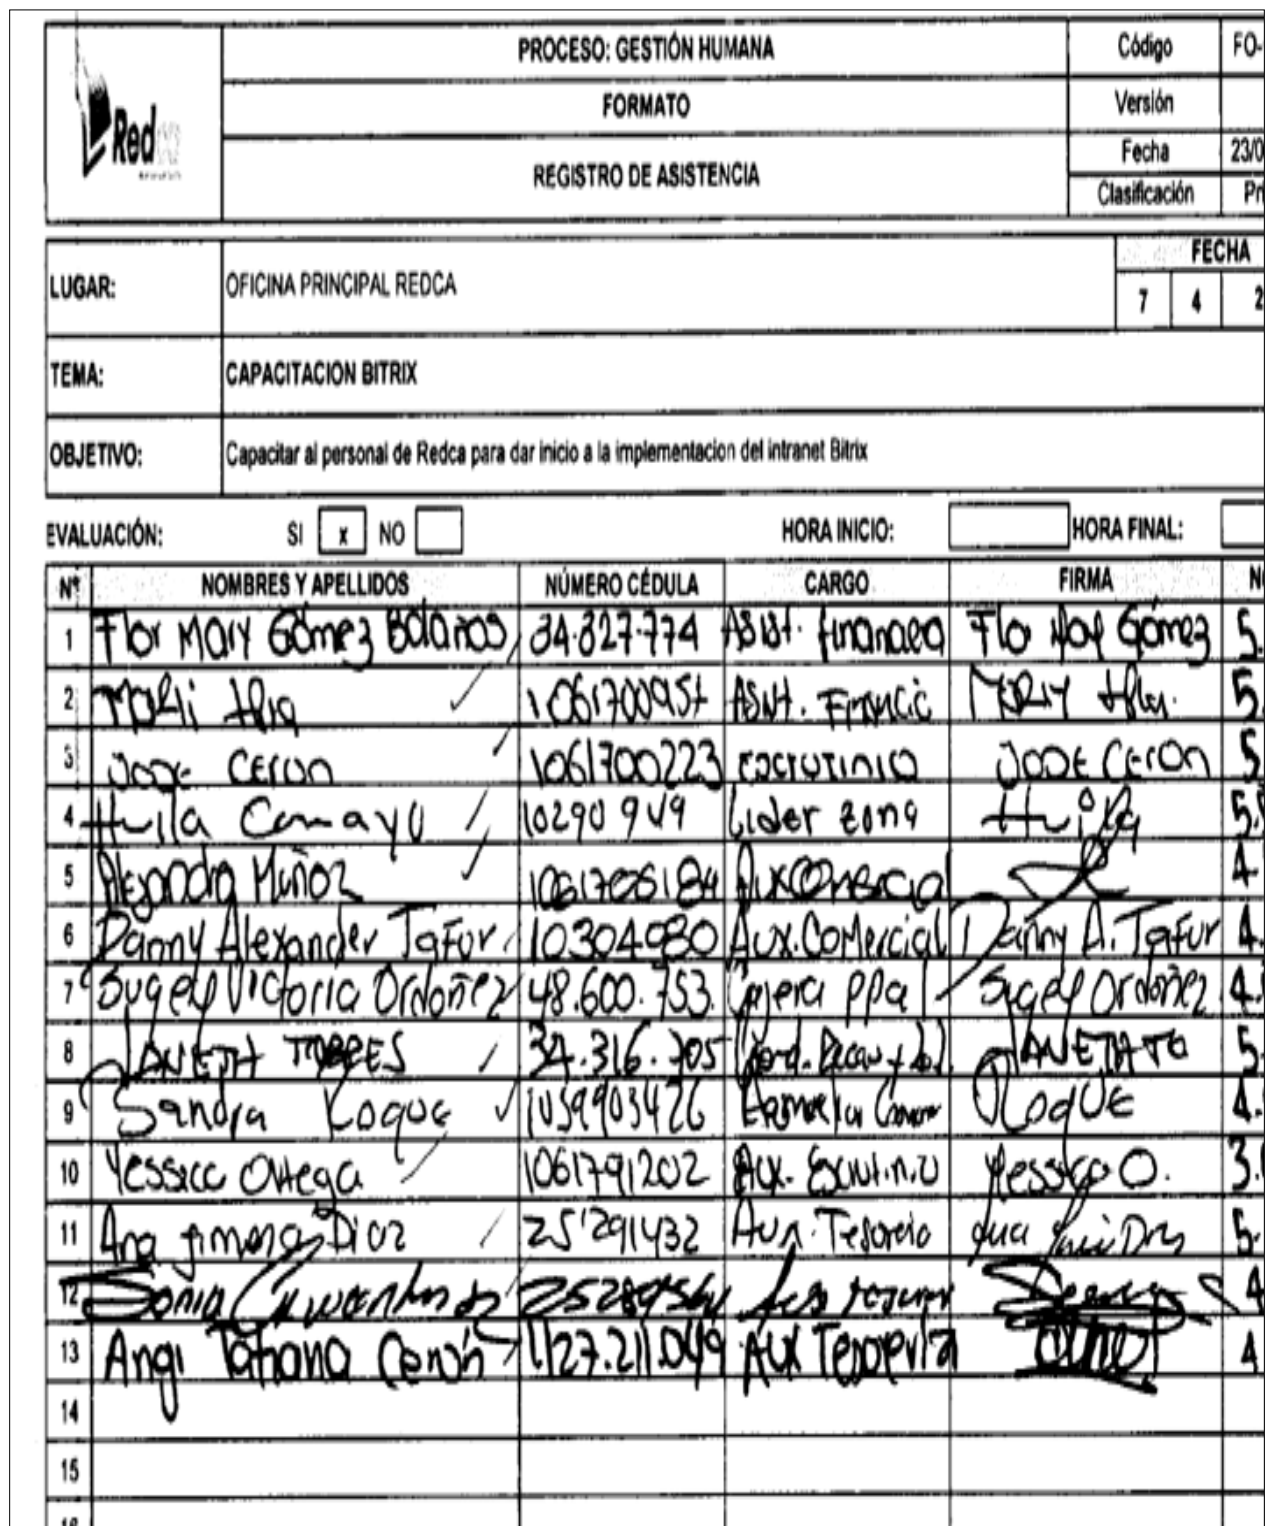 Redca
PROCESO: GESTIÓN HUMANA Código FO-
FORMATO Versión
REGISTRO DE ASISTENCIA Fecha 23/0
Clasificación Pri
LUGAR: OFICINA PRINCIPAL REDCA FECHA
7 4 2
TEMA: CAPACITACION BITRIX
OBJETIVO: Capacitar al personal de Redca para dar inicio a la implementacion del intranet Bitrix
EVALUACIÓN: SI x NO HORA INICIO: HORA FINAL:
Nº NOMBRES Y APELLIDOS NÚMERO CÉDULA CARGO FIRMA No
1 Flor Mary Gómez Bolaños 34.327.774 Asist. financiera Flor Mary Gómez 5.
2 1061700957 Asist. 5.
3 JOSE CERON 1061700223 escrutinio JOSE CERON 5.
4 Huila Camayo 10290949 Lider zona Huila 5.
5 Alejandra Muñoz Aux Comercial 4.
6 Danny Alexander Tafur 10304080 Aux. Comercial Danny A. Tafur 4.
7 Sugely Victoria Ordoñez 48.600.753. Cajera ppal Sugely Ordoñez 4.
8 JANETH TORRES 34.316.705 JANETH TO 5.
9 Sandra Roque 1059903426 Roque 4.
10 Yessica Ortega 1061791202 Aux. Escrutinio Yessica O. 3.
11 Ana Jimena Diaz 25'291432 Aux. Tesoreria Ana 5.
12 Sonia 4
13 Angi Tatiana Cerón 1127.211.049 Aux Tesorería 4
14
15
16